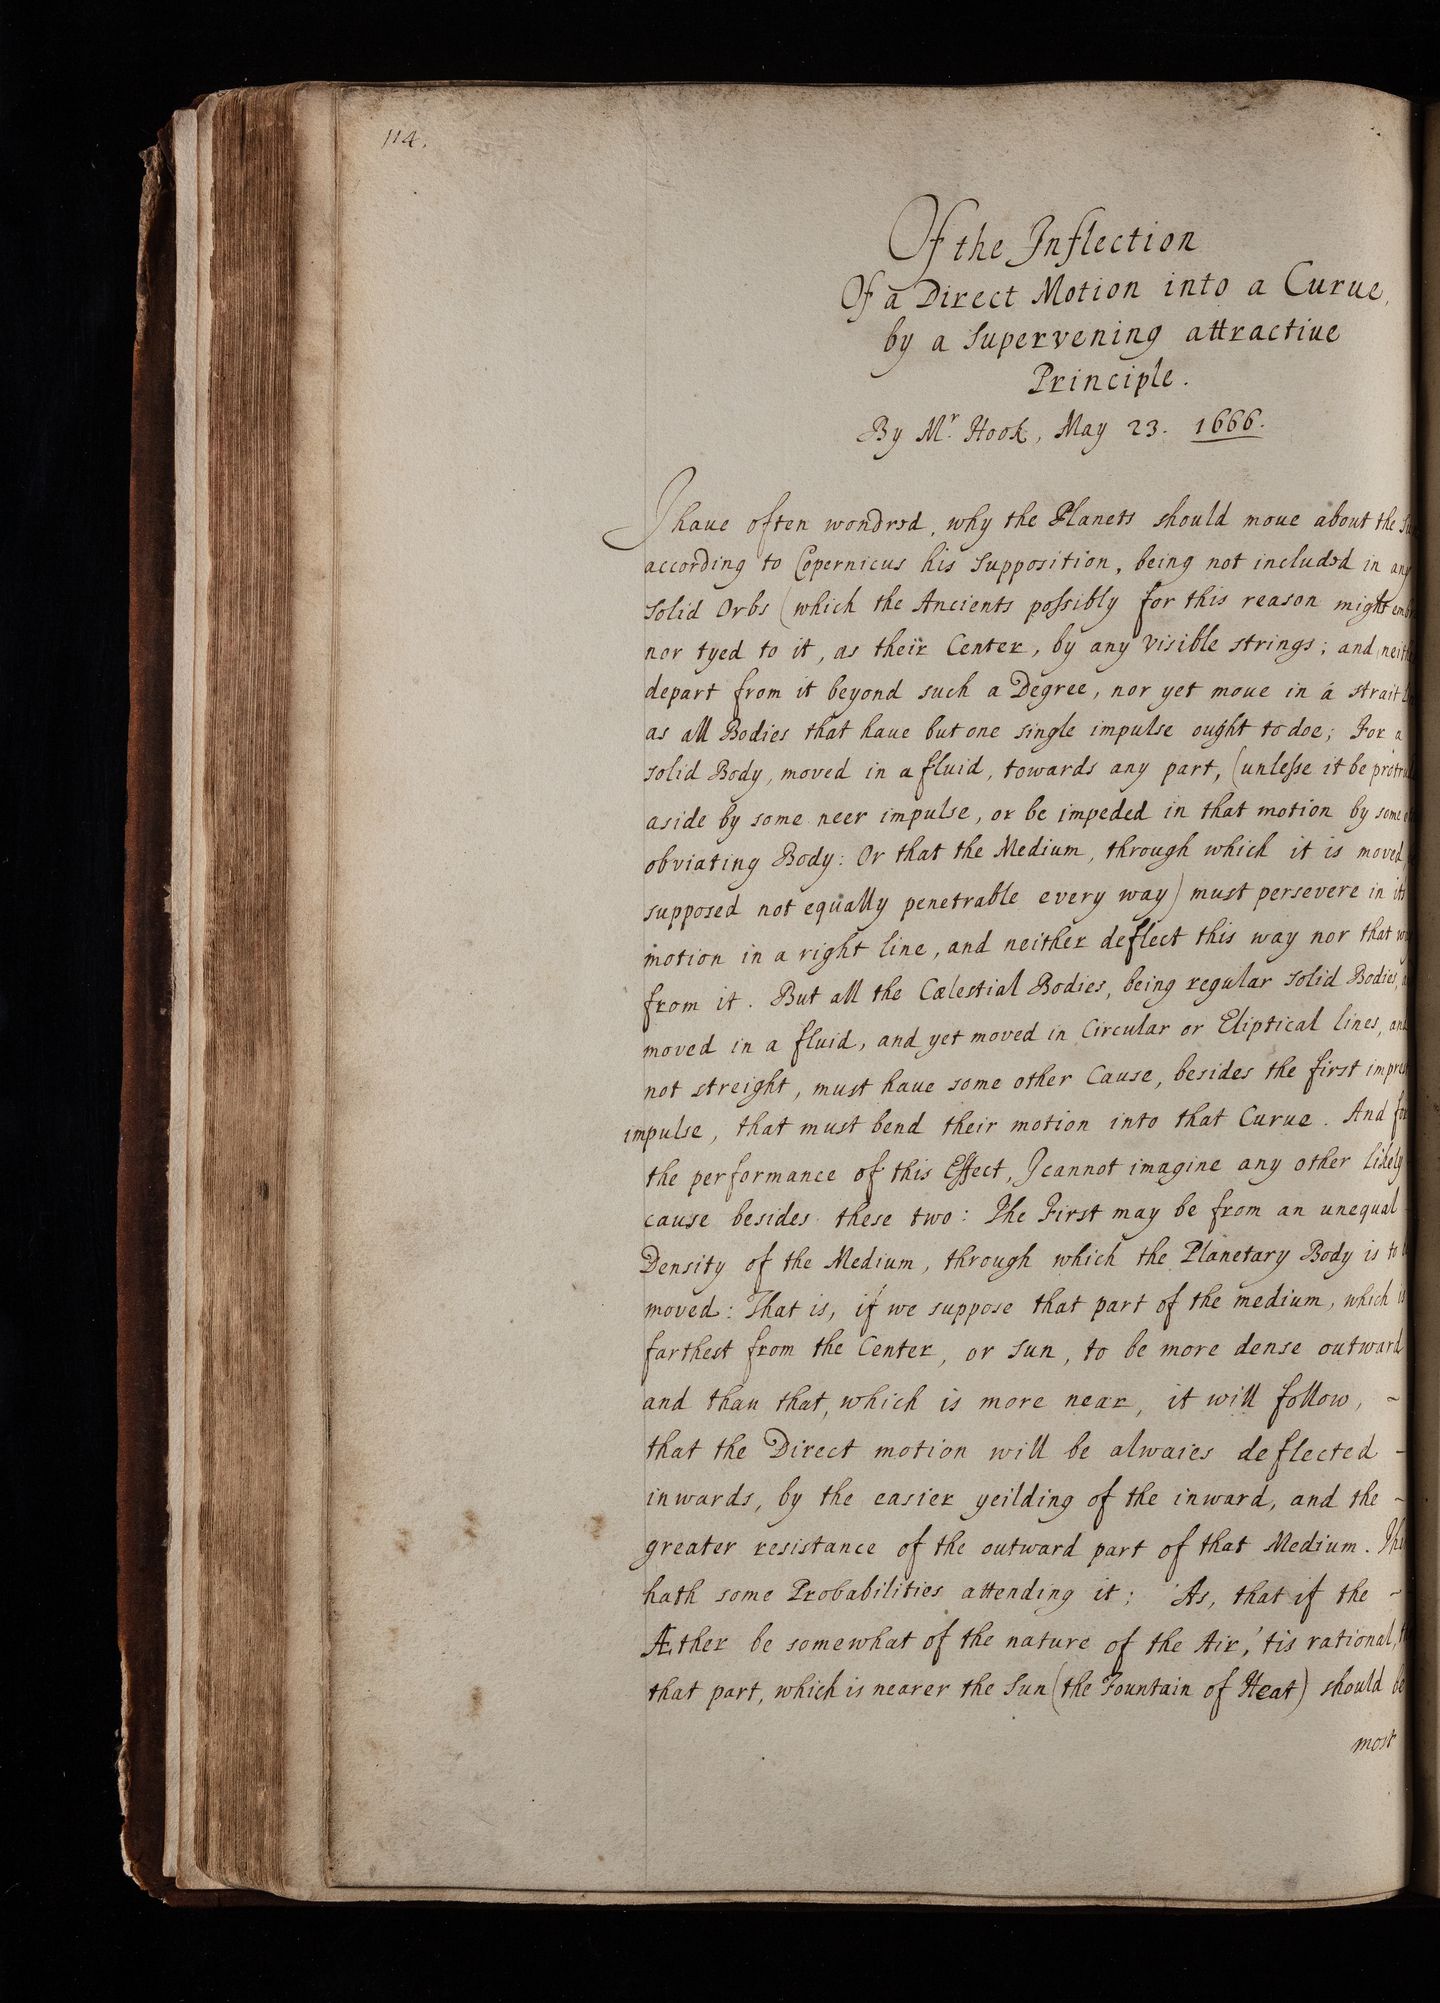 114.
Of the Inflection
Of a Direct Motion into a Curue,
by a Supervening attractiue
Principle.
By Mr. Hook, May 23. 1666.
I haue often wondred, why the Planets should moue about the
according to Copernicus his Supposition, being not included in any
solid Orbs (which the Ancients possibly for this reason might
nor tyed to it, as their Center, by any visible strings; and
depart from it beyond such a Degree, nor yet moue in a strait
as all Bodies that haue but one single impulse ought to doe; For a
solid Body, moved in a fluid, towards any part, (unlesse it be
aside by some neer impulse, or be impeded in that motion by some
obviating Body: Or that the Medium, through which it is moved,
supposed not equally penetrable every way) must persevere in its
motion in a right line, and neither deflect this way nor that
from it. But all the Cælestial Bodies, being regular solid Bodies,
moved in a fluid, and yet moved in Circular or Eliptical lines, and
not streight, must haue some other Cause, besides the first
impulse, that must bend their motion into that Curue. And for
the performance of this Effect, I cannot imagine any other likely
cause besides these two: The First may be from an unequal
Density of the Medium, through which the Planetary Body is to
moved: That is, if we suppose that part of the medium, which is
farthest from the Center, or Sun, to be more dense outward
and than that, which is more near, it will follow, -
that the Direct motion will be alwaies deflected -
inwards, by the easier yeilding of the inward, and the -
greater resistance of the outward part of that Medium.
hath some Probabilities attending it; As, that if the -
Æther be somewhat of the nature of the Air, 'tis rational,
that part, which is nearer the Sun (the Fountain of Heat) should be
most